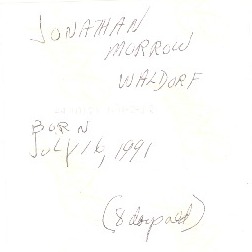 JONATHAN
MORROW
WALDORF
BORN
JULY 16, 1991
(8 days old)